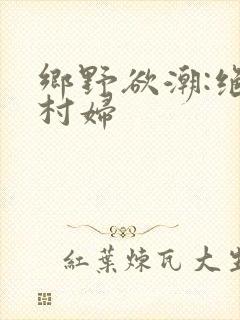 鄉野欲潮:绝
村婦
紅葉煉瓦大